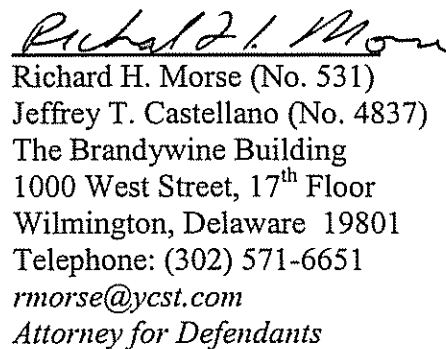 Richard H. Morse
Richard H. Morse (No. 531)
Jeffrey T. Castellano (No. 4837)
The Brandywine Building
1000 West Street, 17th Floor
Wilmington, Delaware 19801
Telephone: (302) 571-6651
rmorse@ycst.com
Attorney for Defendants